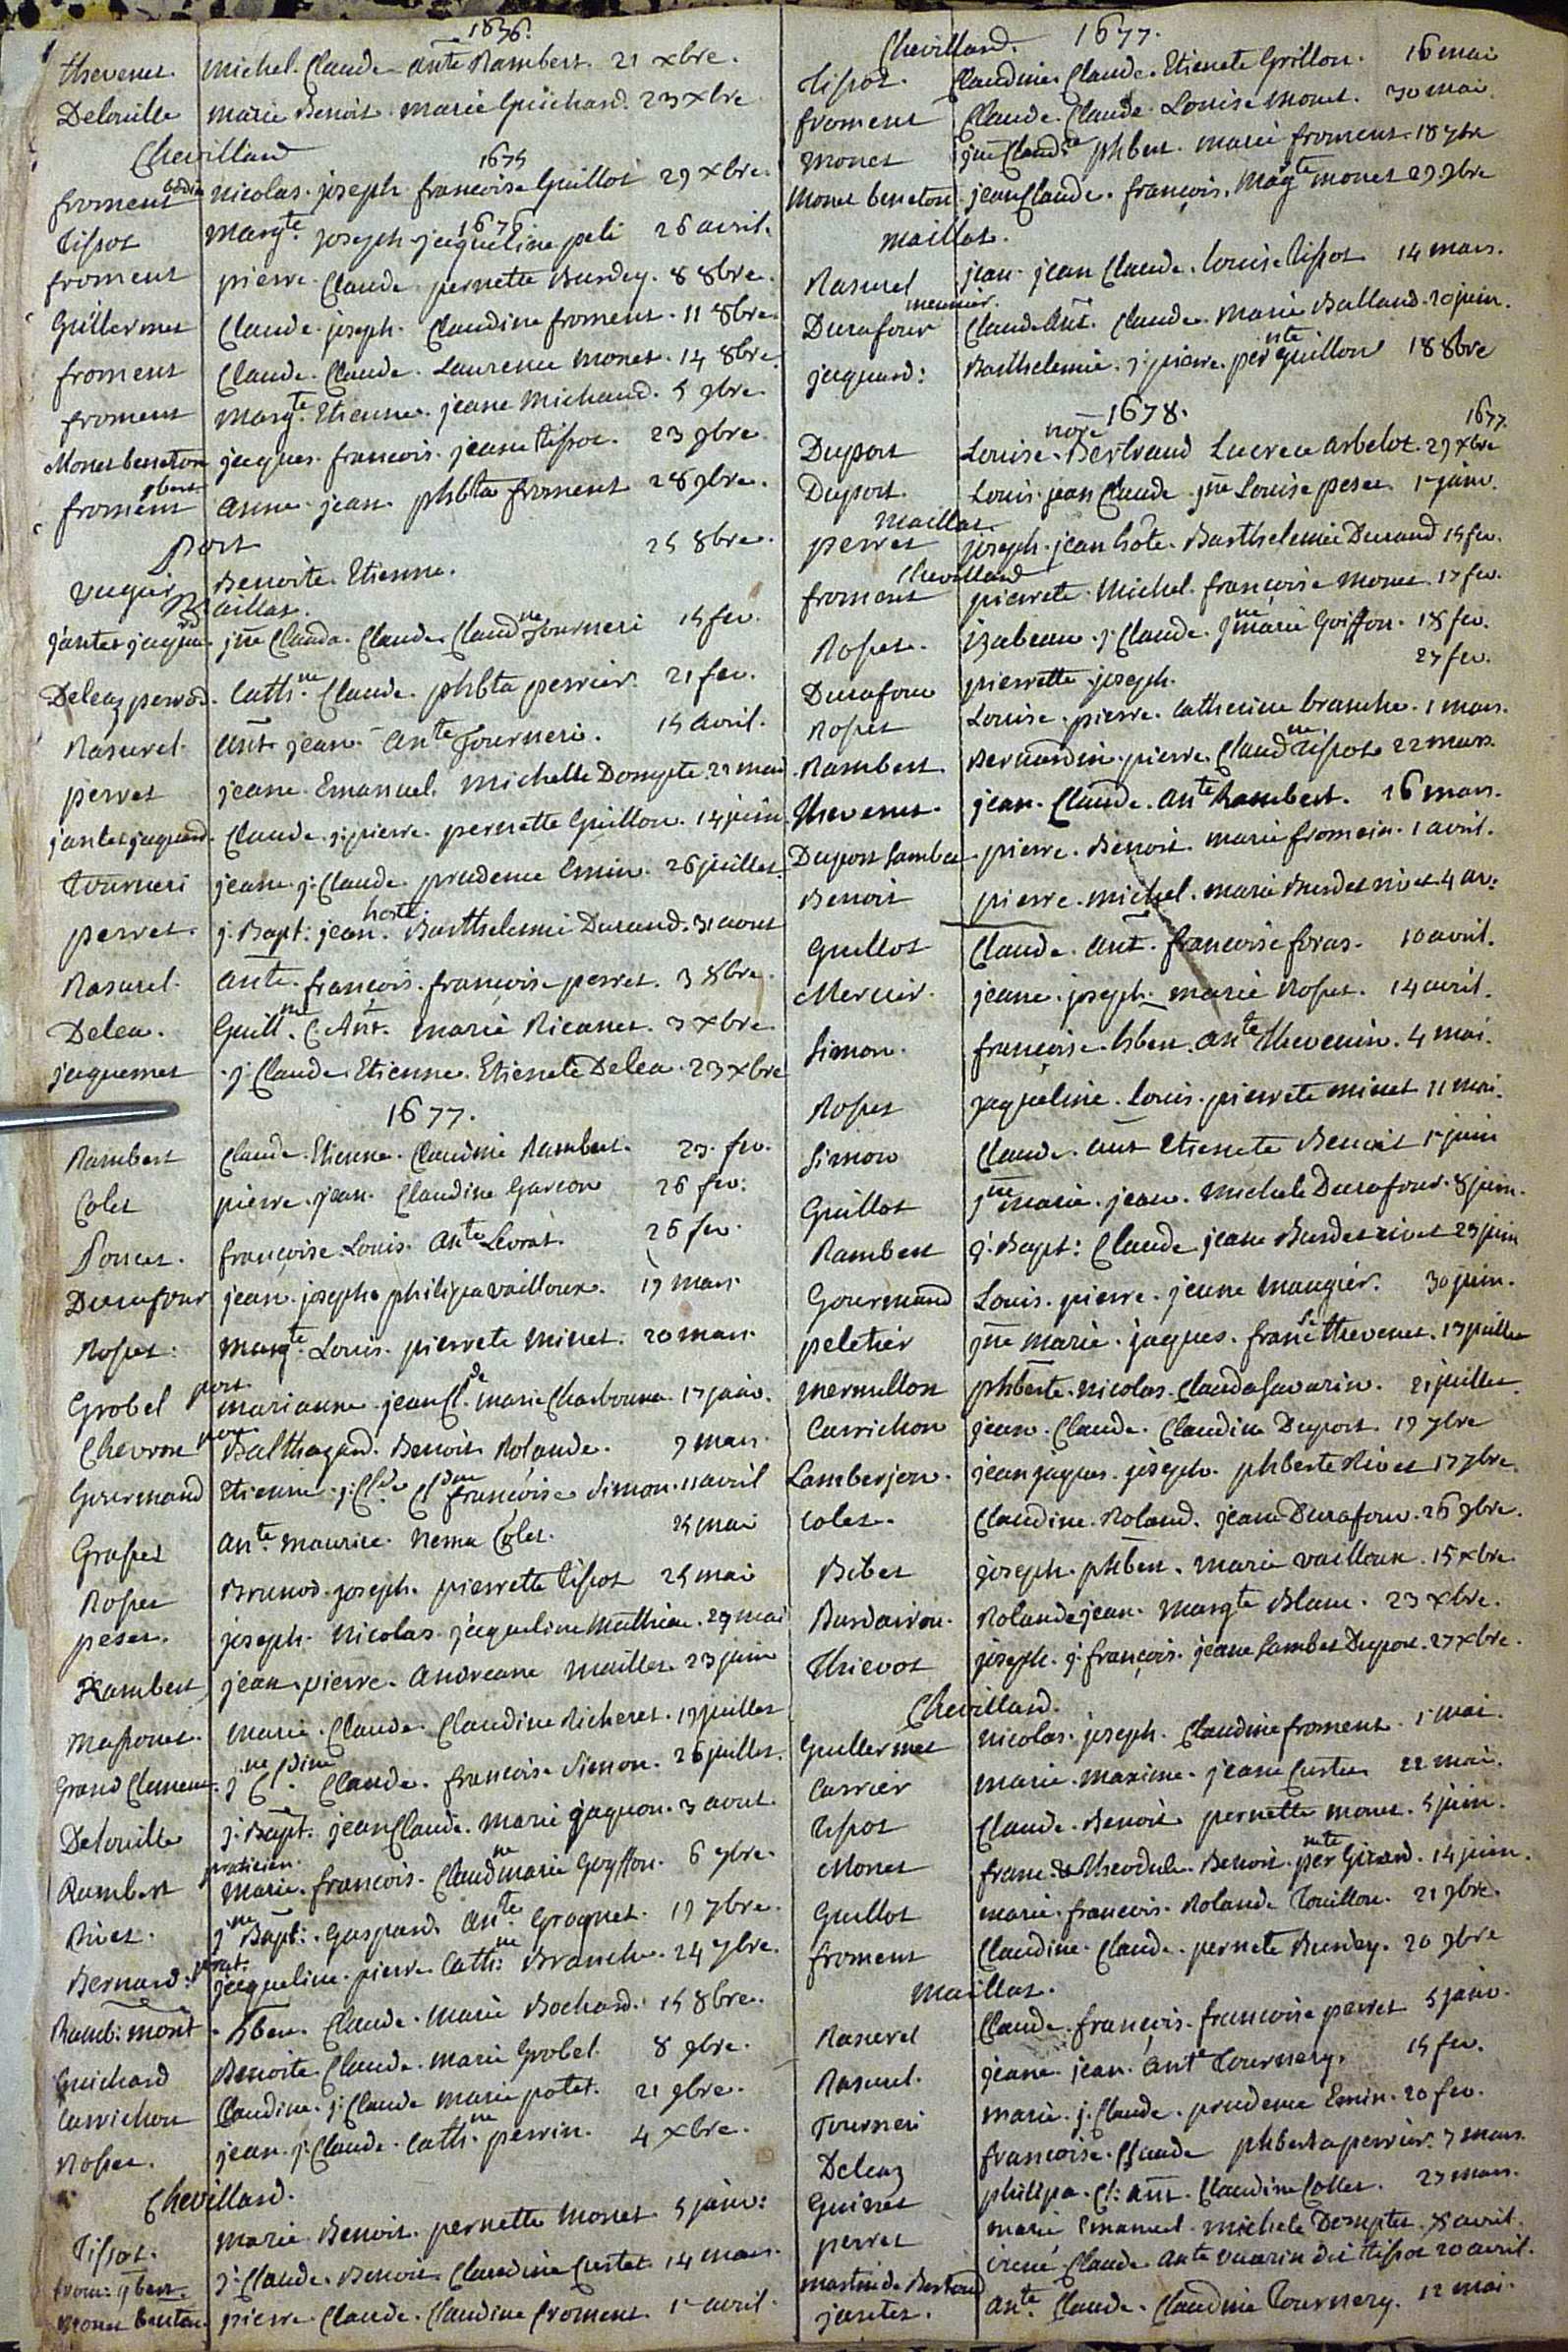 1676.
thevenet. Michel. Claude ante Rambert. 21 xbre.
Delouille marie Benoit. marie Guichard. 23 xbre
Chevilland
1675
froment nicolas. joseph. francoise Guillot 29 xbre.
1676
Tissot Margte. joseph. jaqueline peli 26 avril.
froment pierre. Claude pernette Burdey. 8 8bre.
Guillermet Claude. joseph. Claudine froment. 11 8bre.
froment Claude. Claude. Laurence Monet. 14 8bre.
froment Margte. Etienne. jeane Michaud. 5 9bre.
Monet beneton jaques. francois. jeane tissot. 23 9bre.
froment anne. jean. phbta froment 28 9bre.
Port
Benoite. Etienne. 25 8bre.
Maillat.
jantet jaquard jne Clauda. Claude. Claudne Tourneri 15 fev.
Deleaz perrod. Cathne. Claude. phbta perrier. 21 fev.
Rasurel. ant. jean. ante Tourneri. 15 avril.
perret jeane. Emanuel. Michelle Dompte. 29 mai
jantet jaquard. Claude. j. pierre. pernette Guillon. 14 juin.
Tourneri jeane. j. Claude. prudence Emin. 26 juillet.
hoste.
perret. j. Bapt: jean. Barthelemie Durand. 31 aout
Rasurel. ante. francois. francoise perret. 3 8bre.
Delea. Guillme. C. Ant. marie Ricanet. 3 xbre.
jaquemet j. Claude. Etienne. Etienete Delea. 23 xbre
1677.
Rambert Claude. Etienne. Claudine Rambert. 23. fev.
Colet pierre. jean. Claudine Garcon 26 fev:
Poncet. francoise. Louis. ante Levrat. 26 fev.
Durafour jean. joseph. philipa vailloux. 19 mars.
Rosset: Margte. Louis. pierrete minet. 20 mars.
port
Grobel marianne. jean Cl.de marie Charbonne. 17 janv.
port
Chevron Balthazard. Benoit Rolande. 9 mars.
Gourmand Etienne. j. Cl.de Cl.dine francoise Simon. 11 avril
Grosset ante. maurice. nema Colet. 25 mai
Rosset Brunod. joseph. pierrette tissot 25 mai
peset. joseph. nicolas. jaqueline Mathieu. 29 mai
Rambert jean. pierre. andreane maillet. 23 juin
Massonet. marie. Claude. Claudine Richeret. 19 juillet
Grand Clement. jne Cl.dine Claude. francoise Simon. 26 juillet.
Delouille j. Bapt. jean Claude. marie jaquon. 3 aout.
praticien.
Rambert marie. francois. Claudne marie Goyffon. 6 7bre.
Rivet. jne Bapt:. Gaspard. ante. Groquet. 19 7bre.
Bernard: jaqueline. pierre. Cathne. Branche. 24 7bre.
Ramb: mont hbert. Claude. marie Bochard. 15 8bre.
Guichard Benoite. Claude. marie Grobel. 8 9bre.
Carrichon Claudine. j. Claude marie potet. 21 9bre.
Rosset. jean. j. Claude. Cathne. perrin. 4 xbre.
Chevilland.
Tissot. marie. Benoit. pernette Monet. 5 janv:
from: gbert. j. Claude. Benoit. Claudine Curtet. 14 mars.
Monet beneton. pierre. Claude. Claudine froment. 1er avril.
1677.
Chevilland.
Tissot. Claudine. Claude. Etienete Grillon. 16 mai
froment Claude. Claude. Louise Monet. 30 mai.
Monet jne Claudne. phbert. marie froment. 18 7bre
Monet beneton jean Claude. françois. Magte monet 29 9bre
Maillat.
Rasurel jean. jean Claude. Louise Tissot 14 mars.
meunier.
Durafour Claude ant. Claude. Marie Balland. 20 juin.
jaquard: Barthelemie. j. pierre. pernte guillon 18 8bre
1678.
nore 1677.
Duport Louise. Bertrand Lucrece arbelot. 29 xbre
Duport. Louis. jean Claude jne Louise peset. 1er janv.
Maillat.
perret joseph. jean hôte. Barthelemie Durand 15 fev.
Chevilland
froment pierrete. Michel. francoise Monet. 17 fev.
Rosset. isabeau. j. Claude. jne marie Goiffon. 18 fev.
Durafour pierrette. joseph. 27 fev.
Rosset Louise. pierre. catherine branche. 1 mars.
Rambert Bernardin. pierre. Claudne Tissot 22 mars.
Thevenet. jean. Claude. ante Rambert. 26 mars.
Duport Lambea. pierre. Benoit. marie fromein. 1 avril.
Benoit pierre. michel. marie Burdet rivet 4 av:
Guillot Claude. ant. francoise foras. 10 avril.
Mercier. jeane. joseph. marie Rosset. 14 avril.
Simon. françoise. hbert. ante Thevenin. 4 mai.
Rosset jaqueline. Louis. pierrete minet 11 mai.
Simon Claude. ant Etienete Benoit 1er juin
Guillot jne marie. jean. michele Durafour. 8 juin.
Rambert j. Bapt: Claude jeane Burdet rivet 29 juin
Gourmand Louis. pierre. jeane maugier. 30 juin.
peletier jne marie. jaques. franse thevenet. 19 juillet
mermillon phberte. nicolas. Clauda Savarin. 21 juillet.
Carrichon jean. Claude. Claudine Duport. 19 7bre
Lamberjeon. jean jaques. joseph. phberte Rivet 17 7bre.
Colet. Claudine. Roland. jeane Durafour. 26 9bre.
Bibet joseph. phbert. marie vailloux. 15 xbre.
Burdairon. Rolande jean. Margte Blanc. 23 xbre.
Thievot joseph. j. françois. jeane Lambet Duport. 27 xbre.
Chevilland.
Guillermet nicolas. joseph. Claudine froment. 1er mai.
Carrier marie. maxime. jeane Curtet 22 mai.
Tissot Claude. Benoit pernette monet. 5 juin.
Monet Theodule. Benoit. pernte Girard. 14 juin.
Guillot marie. francois. Rolande Touillon. 21 9bre.
froment Claudine. Claude. pernete Burdey. 20 9bre
Maillat.
Rasurel Claude. françois. francoise perret 5 janv.
Rasurel. jeane. jean. ante Tournery. 15 fev.
Tourneri marie. j. Claude. prudence Emin. 20 fev.
Deleaz francoise. Claude phberta perrier. 7 mars.
Guinet philipa. Cl: ant. Claudine Collet. 27 mars.
perret marie Emanuel. michele Domptet. 8 avril.
martin de Bertrand irené. Claude. ante vuarin dit tissot 20 avril.
jantet. ante. Claude. Claudine Tournery. 12 mai.